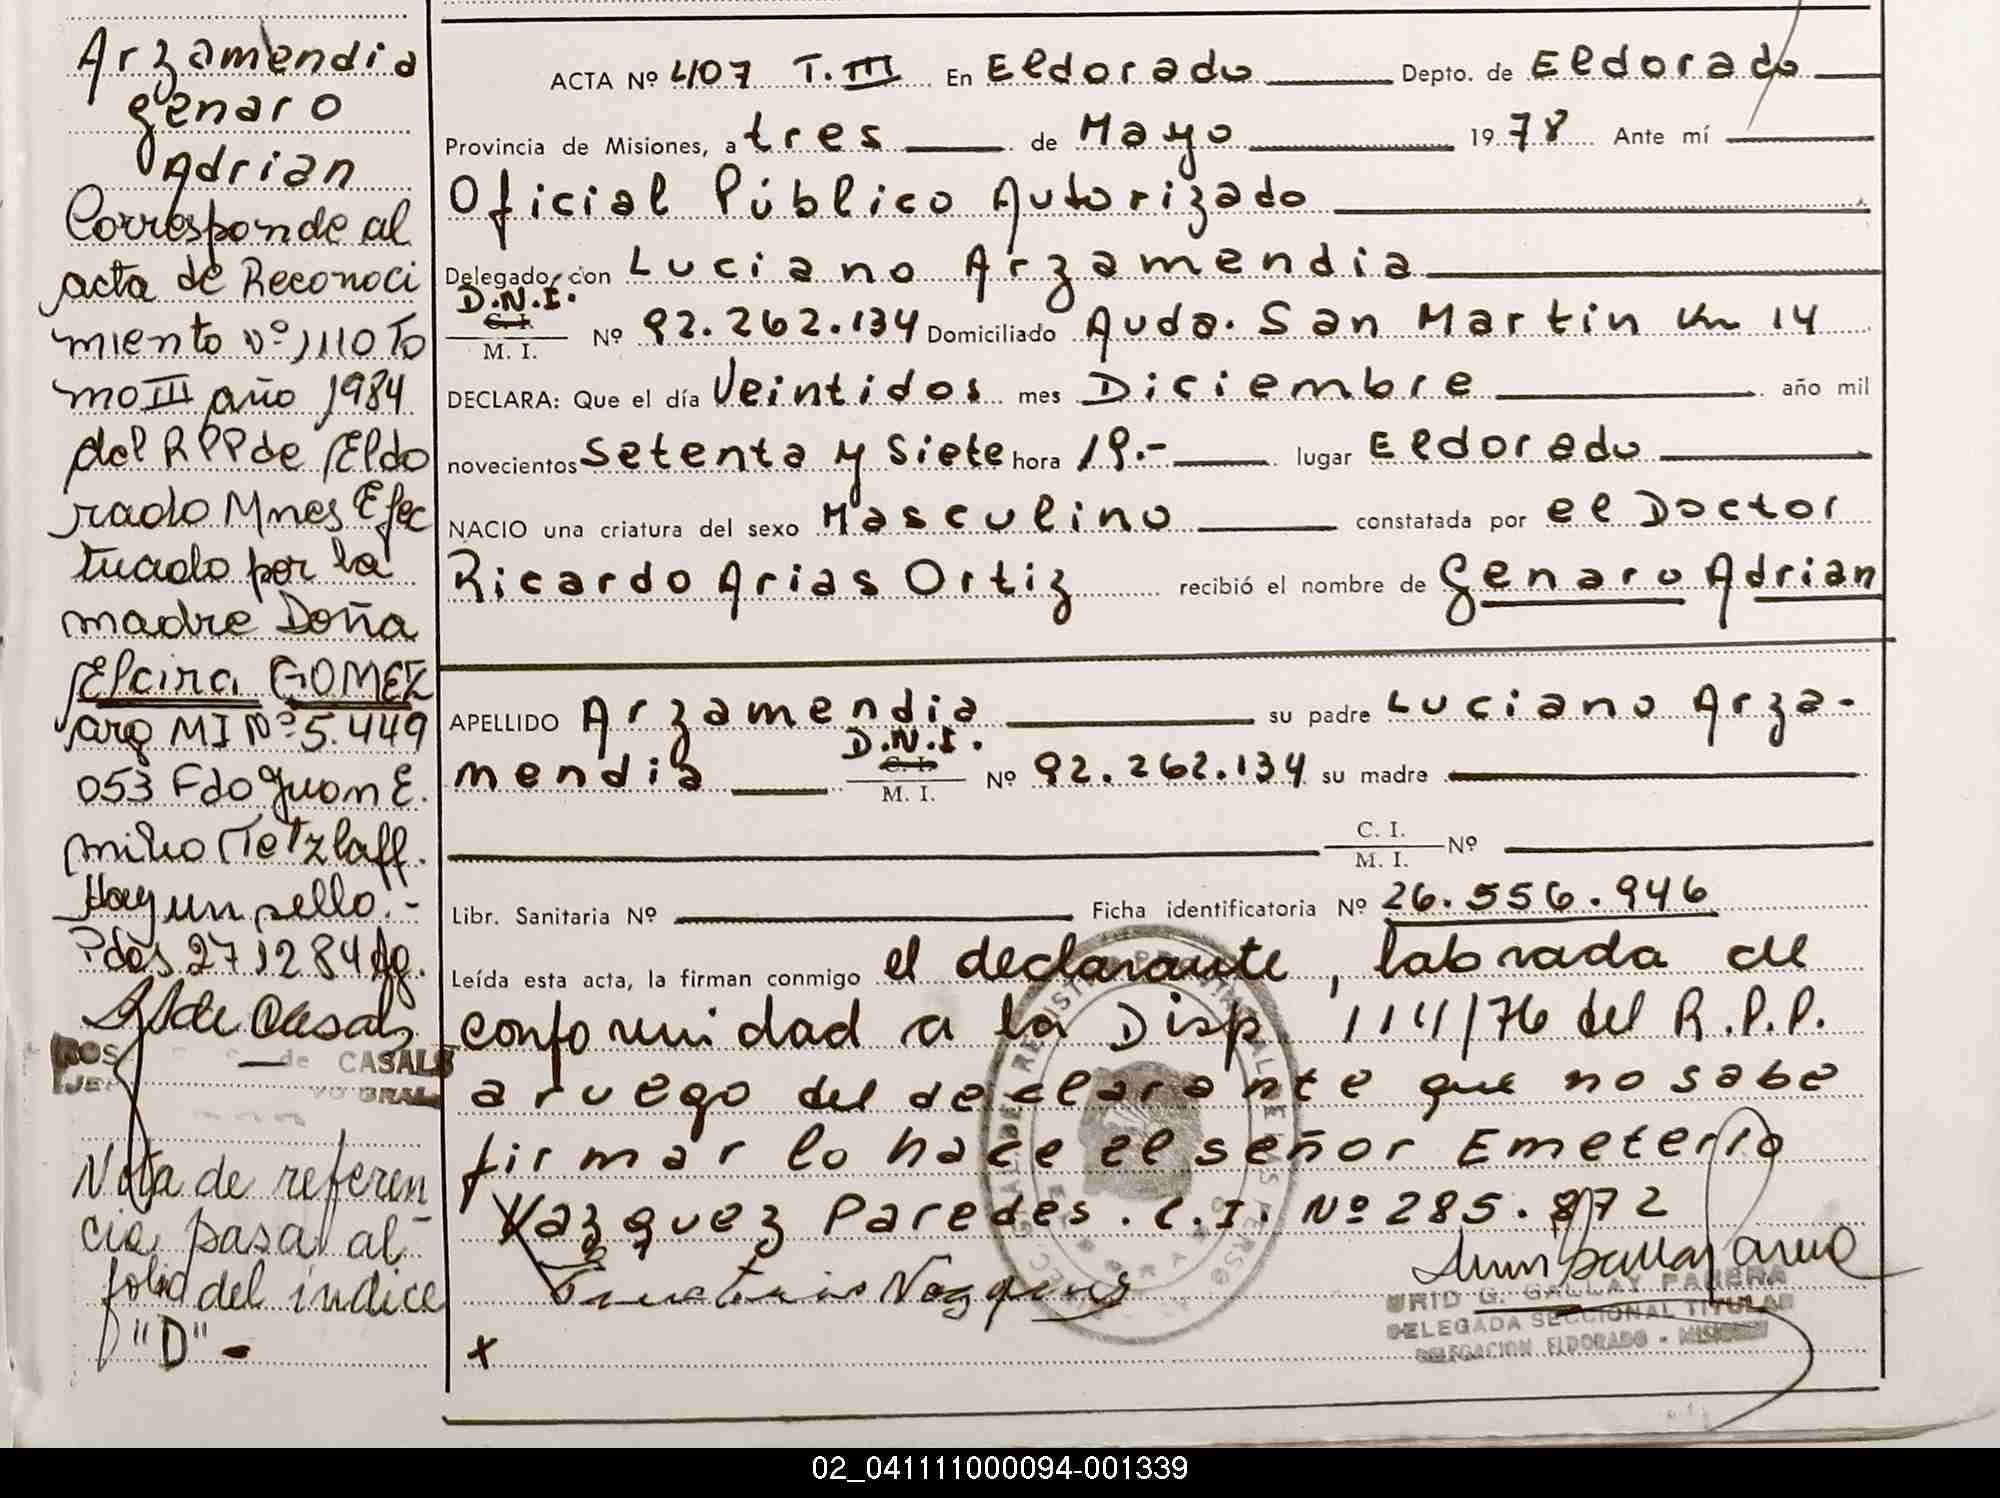 Arzamendia
Genaro
Adrian
Corresponde al
acta de Reconoci
miento Nº 1110 To
mo III año 1984
del RPP de Eldo
rado Mnes Efec
tuado por la
madre Doña
Elcira GOMEZ
arg MI Nº 5.449
053 Fdo Juan E.
milio Tetzlaff.
Hay un sello.-
Pdas 27 12 84
de Casals
ROS de CASALS
JE GRAL
Nota de referen
cia pasa al
folio del indice
"D" -
ACTA Nº 407 T. III En Eldorado Depto. de Eldorado
Provincia de Misiones, a tres de Mayo 1978 Ante mí
Oficial Público Autorizado
Delegado, con Luciano Arzamendia
D.N.I.
C. I.
M. I. Nº 92.262.134 Domiciliado Avda. San Martin Km 14
DECLARA: Que el día Veintidos mes Diciembre año mil
novecientos Setenta y Siete hora 19.- lugar Eldorado
NACIO una criatura del sexo Masculino constatada por el Doctor
Ricardo Arias Ortiz recibió el nombre de Genaro Adrian
APELLIDO Arzamendia su padre Luciano Arza-
D.N.I.
mendia C. I. M. I. Nº 92.262.134 su madre
C. I.
M. I. Nº
Libr. Sanitaria Nº Ficha identificatoria Nº 26.556.946
Leída esta acta, la firman conmigo el declarante, labrada de
conformidad a la Disp 1111/76 del R.P.P.
a ruego del declarante que no sabe
firmar lo hace el señor Emeterio
Vazquez Paredes. C.I. Nº 285.872
x
URID G. GALLAY PARERA
DELEGADA SECCIONAL TITULAR
DELEGACION ELDORADO - MISIONES
02_041111000094-001339